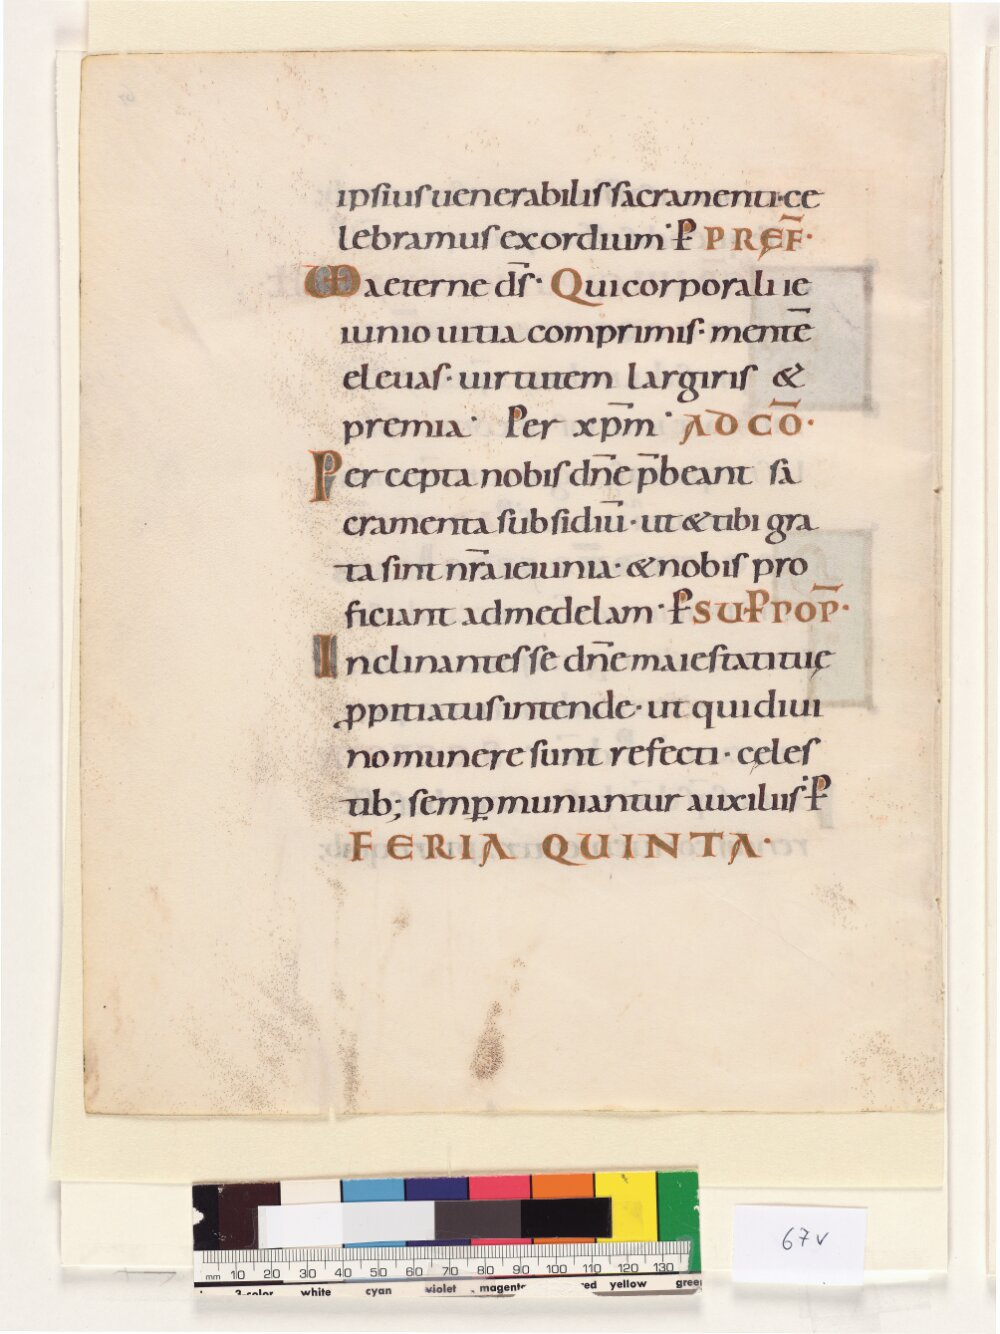 ipsius uenerabilis sacramenti·ce
lebramus exordium· P̶ PRĘF̄·
VD aeterne ds̄· Qui corporali ie
iunio uitia comprimis· mentē
eleuas· uirtutem largiris &
premia· Per xp̄m· AD CŌ·
Percepta nobis dn̄e p̄beant sa
cramenta subsidiū· ut & tibi gra
ta sint nr̄a ieiunia· & nobis pro
ficiant ad medelam· P̶ SUP POP̄·
Inclinantes se dn̄e maiestati tuę
ꝓpitiatus intende· ut qui diui
no munere sunt refecti· cęles
tib; semꝑ muniantur auxiliis· P̶
FERIA QUINTA·
mm 10 20 30 40 50 60 70 80 90 100 110 120 130
3-color white cyan violet magenta red yellow green
67v